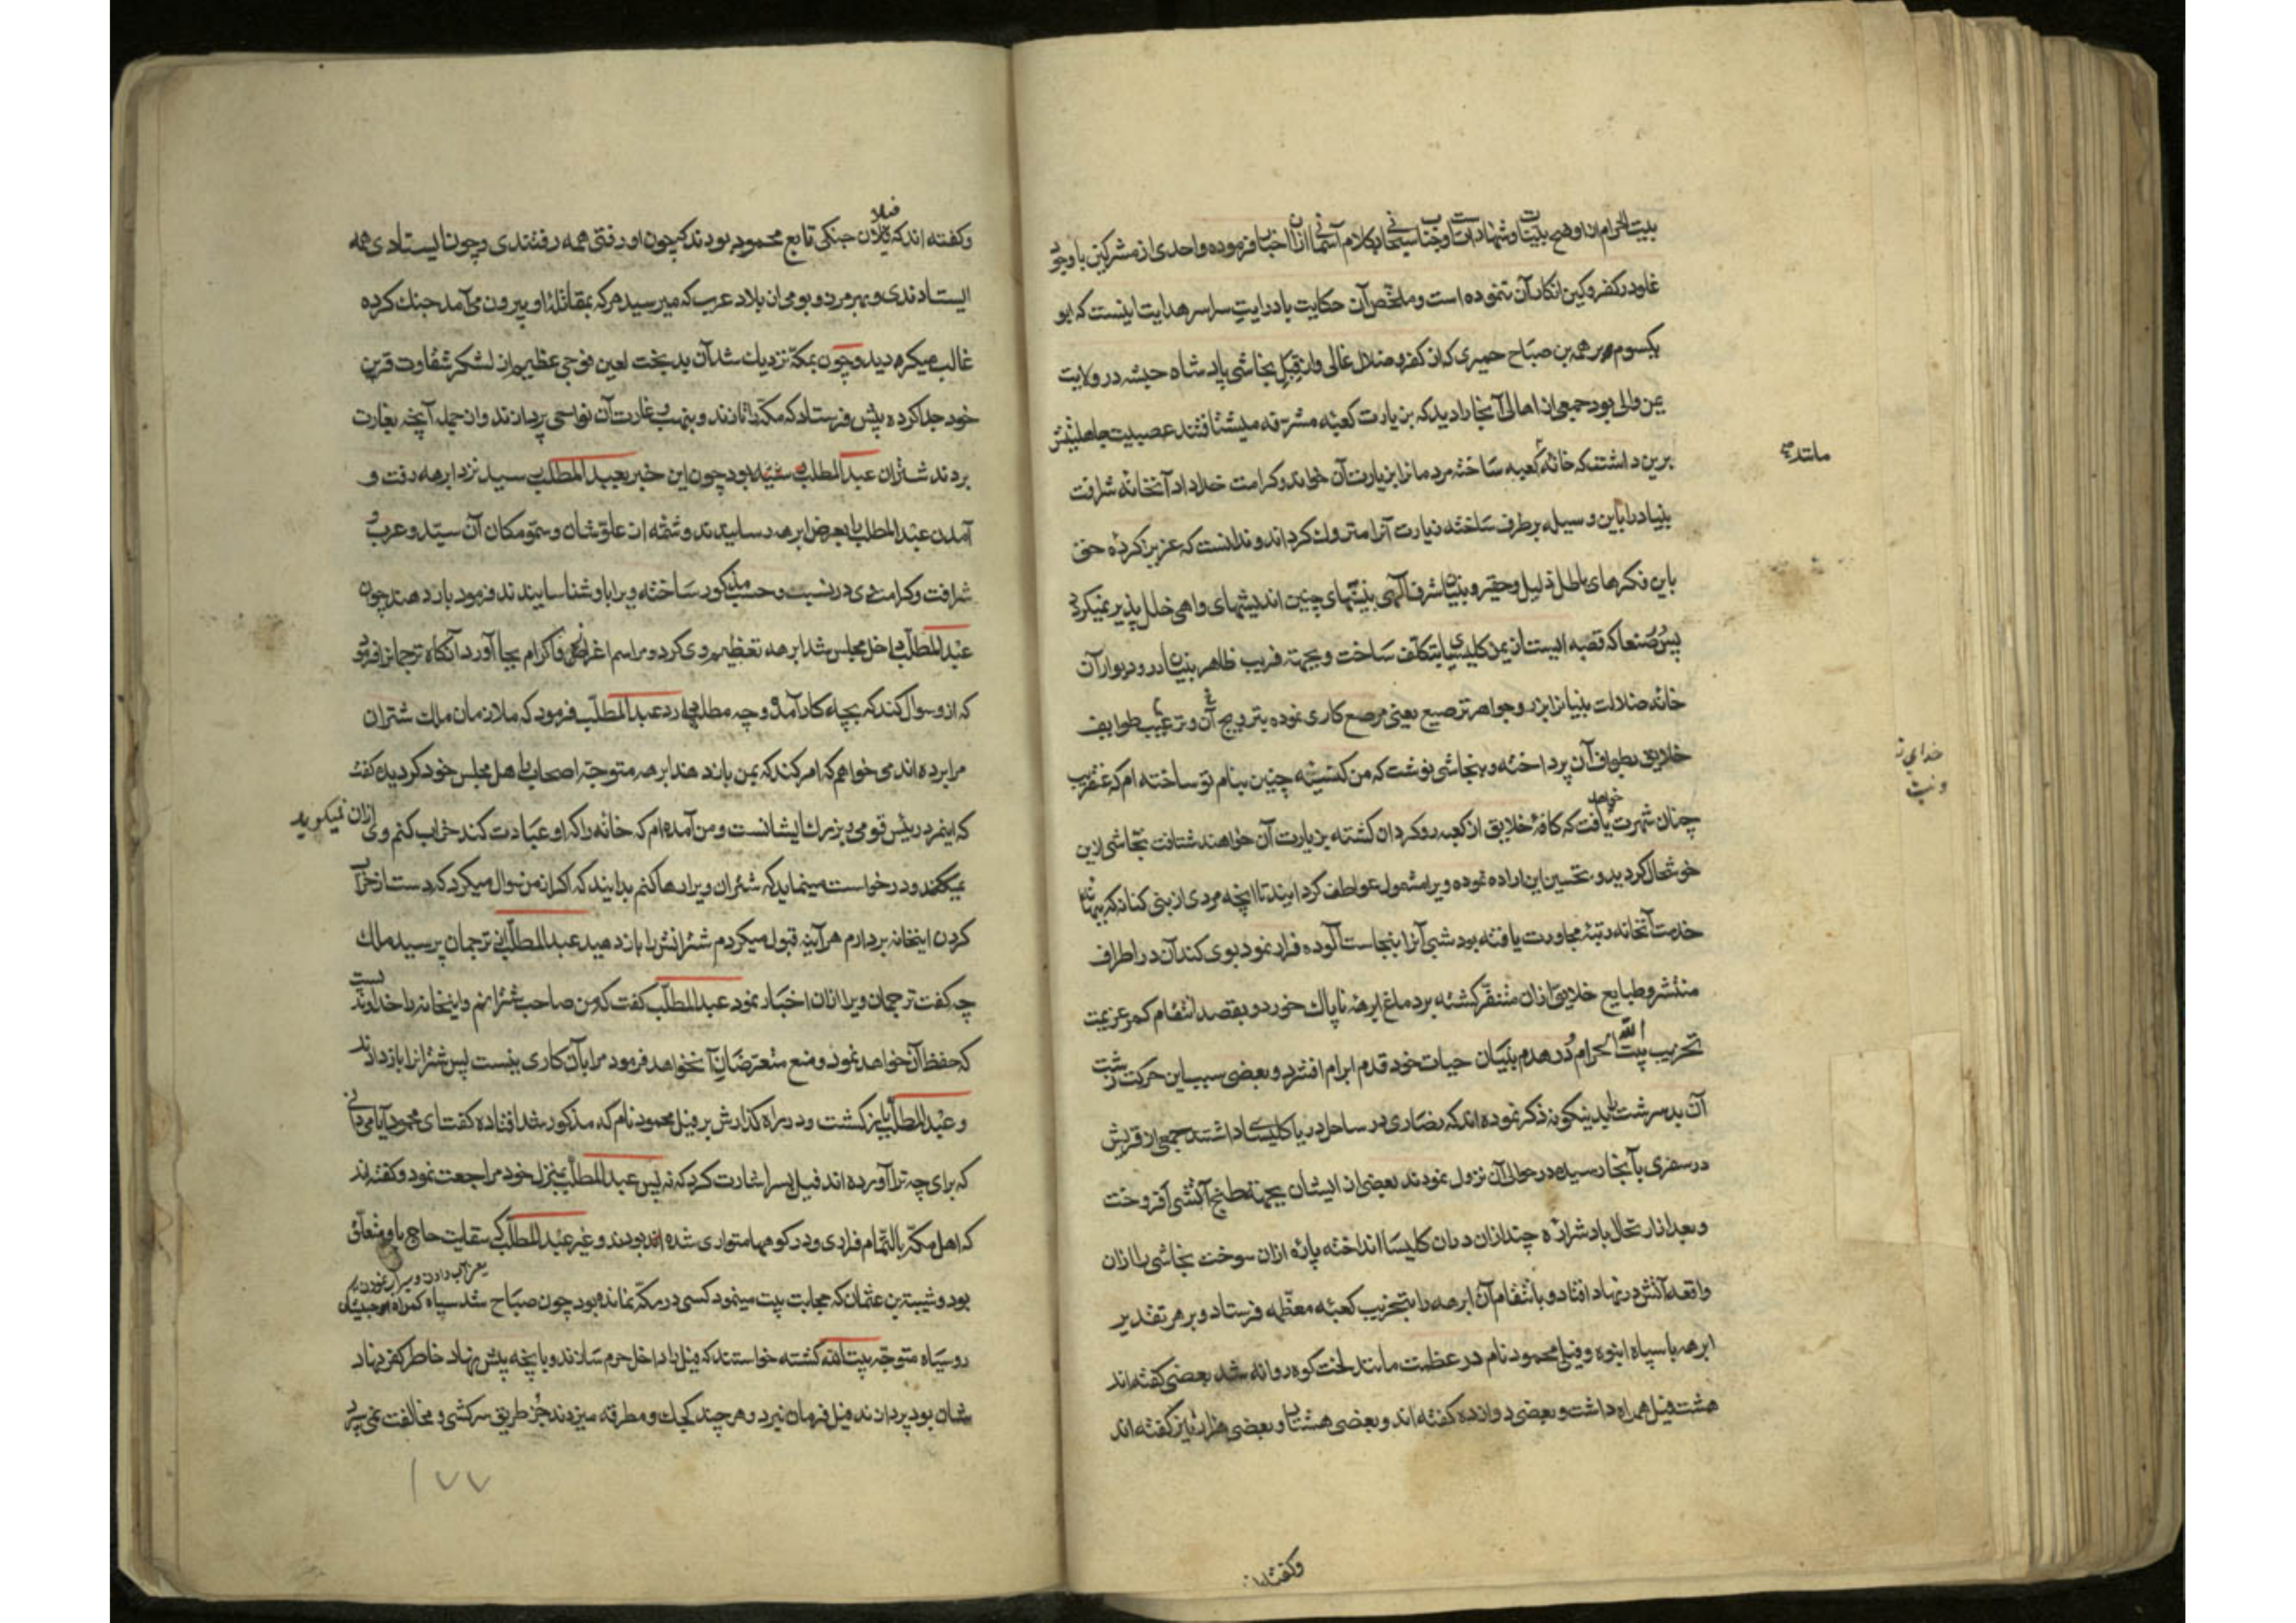 بیت الحرام از اوضح بینات و شهادات است و جناب سبحانی بکلام آسمانی ازان اخبار فرموده واحدی از مشرکین با وجود
غلو در کفر و کین انکار آن ننموده است و ملخص آن حکایت با درایت سراسر هدایت اینست که ابو
یکسوم ابرهه بن صباح حمیری که از کفر و ضلال غالی و از قبل نجاشی پادشاه حبشه در ولایت
یمن والی بود جمعی از اهالی آنجا را دید که بزیارت کعبه مشرفه میشتافتند عصبیت جاهلیتش
برین داشت که خانه کعبه ساخته مردمانرا بزیارت آن خواند و کرامت خداداد آنخانه شرافت
بنیاد را باین وسیله برطرف ساخته زیارت آنرا متروک کرداند و ندانست که عزیز کرده حق
باین فکرهای باطل ذلیل و حقیر و بنیان شرف الهی بنیتهای چنین اندیشهای واهی خلل پذیر نمیکردد
پس در صنعا که قصبه ایست از یمن کلیسیایی بتکلف ساخت و بجهته فریب ظاهر بنیان در و دیوار آن
خانه ضلالت بنیانرا بزر و جواهر ترصیع یعنی مرصع کاری نموده بترویج آن و ترغیب طوایف
خلایق بطواف آن پرداخته و بنجاشی نوشت که من کنیسه چنین بنام تو ساخته ام که عنقریب
چنان شهرت خواهد یافت که کافه خلایق از کعبه رو کردان کشته بزیارت آن خواهند شتافت نجاشی ازین
خوشحال کردید و تحسین این اراده نموده ویرا مشمول عواطف کردانید تا آنچه مردی از بنی کنانه که
خدمت آنخانه رتبه مجاورت یافته بود شبی آنرا بنجاست آلوده فرار نمود بوی کند آن در اطراف
منتشر و طبایع خلایق ازان متنفر کشته بر دماغ ابرهه ناپاک خورد و بقصد انتقام کمر عزیمت
تخریب بیت الله الحرام در هدم بنیان حیات خود قدم ابرام افشرد و بعضی سبب این حرکت زشت
آن بد سرشت پلید بنیکونه ذکر نموده اند که نصاری در ساحل دریا کلیسای داشتند جمعی از قریش
در سفری بآنجا رسیده در حوالی آن نزول نمودند بعضی از ایشان بجهته طبخ آتشی افروخت
و بعد از ارتحال باد شراره چند ازان دران کلیسا انداخته پاره ازان سوخت نجاشی را ازان
واقعه آتش در نهاد افتاد و بانتقام آن ابرهه را بتخریب کعبه معظمه فرستاد و بر هر تقدیر
ابرهه با سپاه انبوه و فیل محمود نام در عظمت مانند لخت کوه روانه شد بعضی گفته اند
هشت فیل همراه داشت و بعضی دوازده کفته اند و بعضی هشتاد و بعضی هزار نیز کفته اند
خدای
وکفته اند
وکفته اند که فیلان جنکی تابع محمود بودند که چون او رفتی همه رفتندی و چون ایستادی همه
ایستادندی و بهر مرز و بومی از بلاد عرب که میرسید هرکه بمقاتله او بیرون می آمد جنک کرده
غالب میکردید و چون بمکه نزدیک شد آن بدبخت لعین فوجی عظیم از لشکر شقاوت قرین
خود جدا کرده پیش فرستاد که مکه را تازند و بنهب و غارت آن نواحی پردازند و از جمله آنچه بغارت
بردند شتران عبدالمطلب بود چون این خبر بعبدالمطلب رسید نزد ابرهه رفت و
آمدن عبدالمطلب را بعرض ابرهه رسانیدند و شمه از علو شان و سمو مکان آن سید عرب و
شرافت و کرامت وی در نسب و حسب مذکور ساخته ویرا باو شناسانیدند فرمود بار دهند چون
عبدالمطلب داخل مجلس شد ابرهه تعظیم وی کرد و مراسم اعزاز و اکرام بجا آورد آنکاه ترجمانرا فرمود
که ازو سوال کند که بچه کار آمده و چه مطلب دارد عبدالمطلب فرمود که ملازمان ملک شتران
مرا برده اند می خواهم که امر کند که بمن باز دهند ابرهه متوجه اصحاب و اهل مجلس خود کردیده کفت
که اینمرد رئیس قومی و بزرک ایشانست و من آمده ام که خانه را که او عبادت کند خراب کنم وی ازان نمیکوید
نمیکند و درخواست مینماید که شتران ویرا رها کنم بدانید که اکر از من سوال میکرد که دست از خراب
کردن اینخانه بردارم هر آینه قبول میکردم شترانش را باز دهید عبدالمطلب از ترجمان پرسید ملک
چه گفت ترجمان ویرا ازان اخبار نمود عبدالمطلب کفت که من صاحب شترانم و اینخانه را خداوندیست
که حفظ آن خواهد نمود و منع متعرضان آن خواهد فرمود مرا بآن کاری نیست پس شترانرا باز دادند
و عبدالمطلب باز کشت و در راه کذارش بر فیل محمود نام که مذکور شد افتاده کفت ای محمود آیا می دانی
که برای چه ترا آورده اند فیل بسر اشارت کرد که نه پس عبدالمطلب بمنزل خود مراجعت نمود و کفته اند
که اهل مکه بالتمام فراری و در کوهها متواری شده بودند و غیر عبدالمطلب که سقایت حاج باو متعلق
بود و شیبة بن عثمان که حجابت بیت مینمود کسی در مکه نمانده بود چون صباح شد سپاه کمراه حبشیان
روسیاه متوجه بیت الله کشته خواستند که فیل را داخل حرم سازند و بآنچه پیش نهاد خاطر کفر نهاد
شان بود پردازند فیل فرمان نبرد و هر چند کجک و مطرقه میزدند جز طریق سرکشی و مخالفت نمی سپرد
۱۷۷